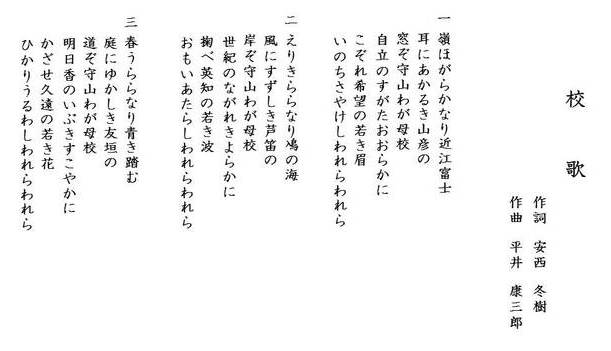 校歌
作詞 安西 冬樹
作曲 平井 康三郎
一 嶺ほがらかなり近江富士
耳にあかるき山彦の
窓ぞ守山わが母校
自立のすがたおおらかに
こぞれ希望の若き眉
いのちさやけしわれらわれら
二 えりきららなり鳰の海
風にすずしき芦笛の
岸ぞ守山わが母校
世紀のながれきよらかに
掬べ英知の若き波
おもいあたらしわれらわれら
三 春うららなり青き踏む
庭にゆかしき友垣の
道ぞ守山わが母校
明日香のいぶきすこやかに
かざせ久遠の若き花
ひかりうるわしわれらわれら